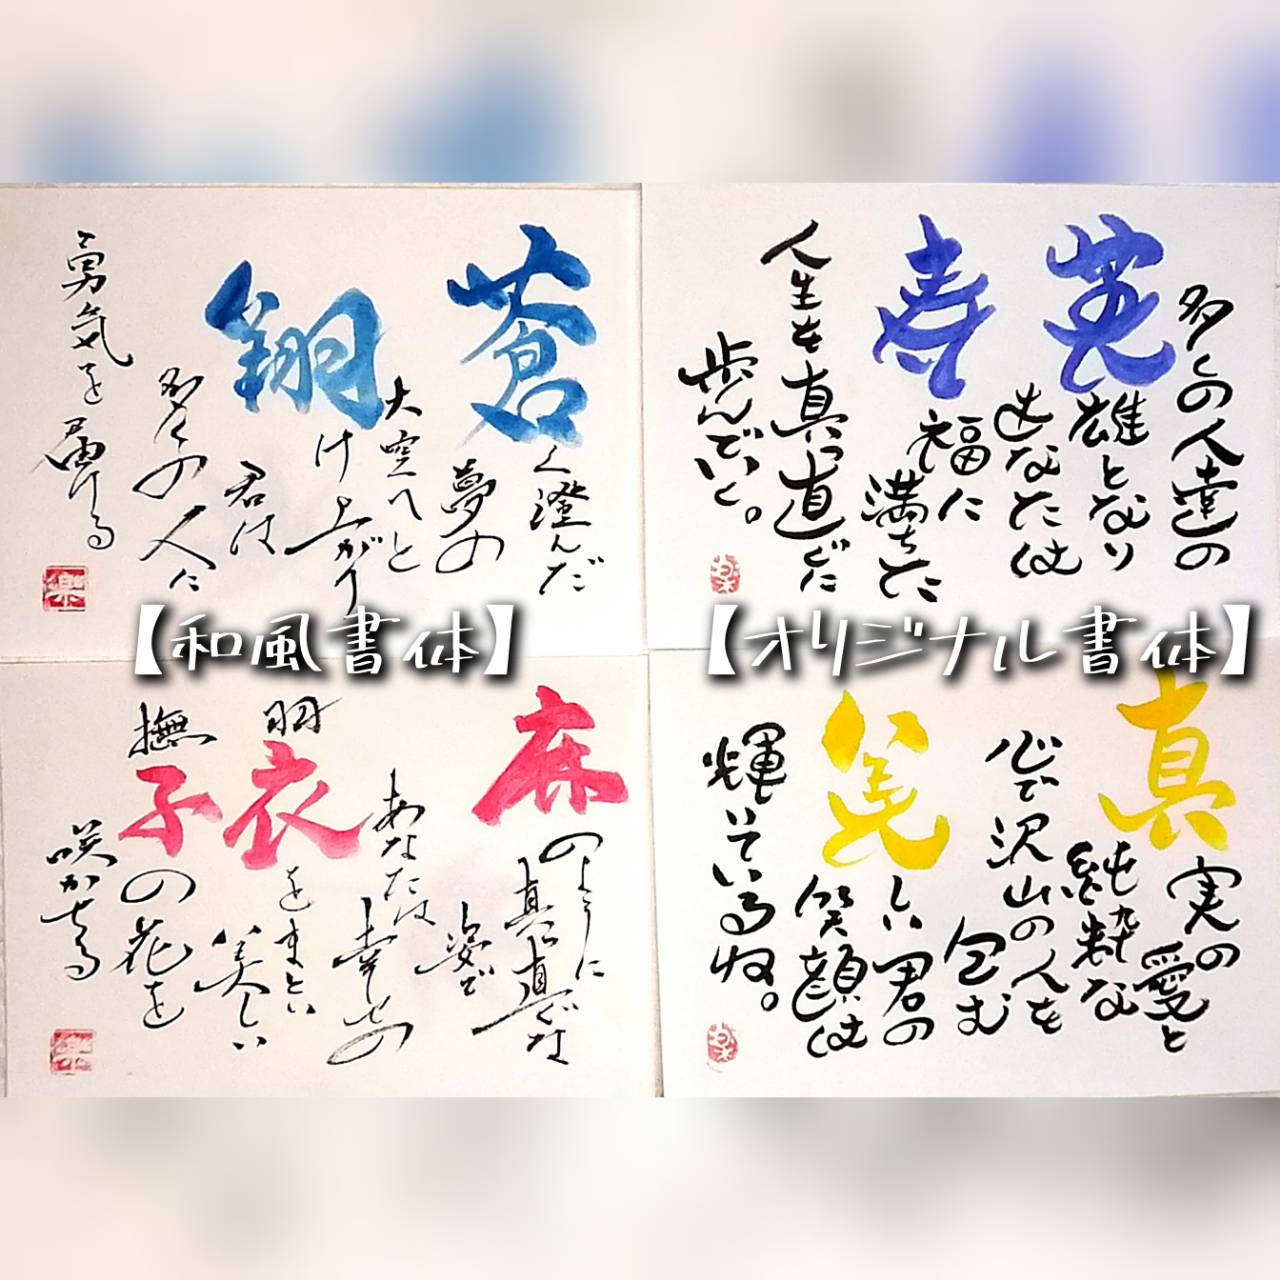 蒼く澄んだ
夢の
大空へと
翔け上がり
君は
多くの人に
勇気を届ける
楽
多くの人達の
英雄となり
あなたは
寿福に
満ちた
人生を真っ直ぐに
歩んでいく。
楽
【和風書体】
【オリジナル書体】
麻のように
真っ直ぐな
姿で
あなたは
幸せの
羽衣をまとい
美しい
撫子の花を
咲かせる
楽
真実の
愛と
純粋な
心で沢山の人を
包む
美しい君の
笑顔は
輝いているね。
楽